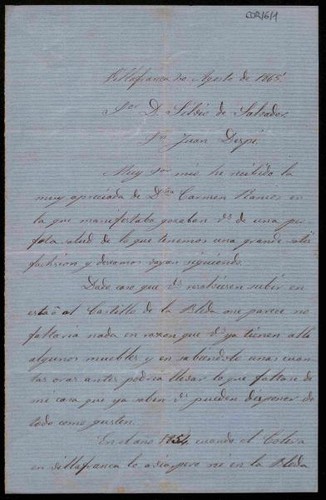 COR/6/1
Villafranca Agosto de 1865.
Sor D. Silvio de Salvador
Sn Juan Despí.
Muy Sor mio: he recibido la
muy apreciada de Dña Carmen Ramos en
la que manifestaba gozaban Vs. de una per
fecta salud de lo que tenemos una grande satis
faccion y deseamos vayan siguiendo.
Dado caso que Vs. resolviesen subir en
esta ó al Castillo de la Bleda me parece no
faltaria nada en razon que Vs ya tienen alli
algunos muebles y en sabiendolo unas cuan
tas oras antes podria llevar lo que faltare de
mi casa que ya saben Vs. pueden disponer de
todo como gusten.
En el año 1854, cuando el Colera
en Villafranca lo asi pero no en la Bleda